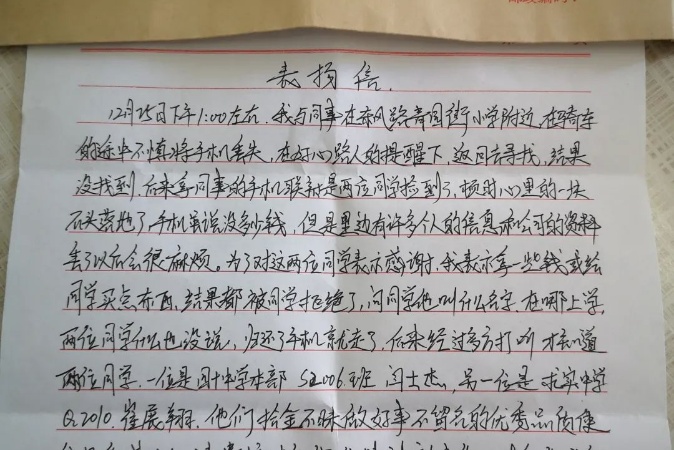 表扬信
12月25日下午1:00左右，我与同事在东风路育园街小学附近，在骑车
的途中不慎将手机丢失，在好心路人的提醒下，返回去寻找，结果
没找到，后来拿同事的手机联系是两位同学捡到了，顿时心里的一块
石头落地了，手机虽说没多少钱，但是里边有许多个人的信息和公司的资料
丢了以后会很麻烦。为了对这两位同学表示感谢，我表示拿一些钱或给
同学买点东西，结果都被同学拒绝了，问同学他叫什么名字，在哪上学，
两位同学什么也没说，归还了手机就走了，后来经过多方打听才知道
两位同学，一位是四十中学本部 S2006.班 闫士杰，另一位是求实中学
Q2010.崔展翔，他们拾金不昧做好事不留名的优秀品质使